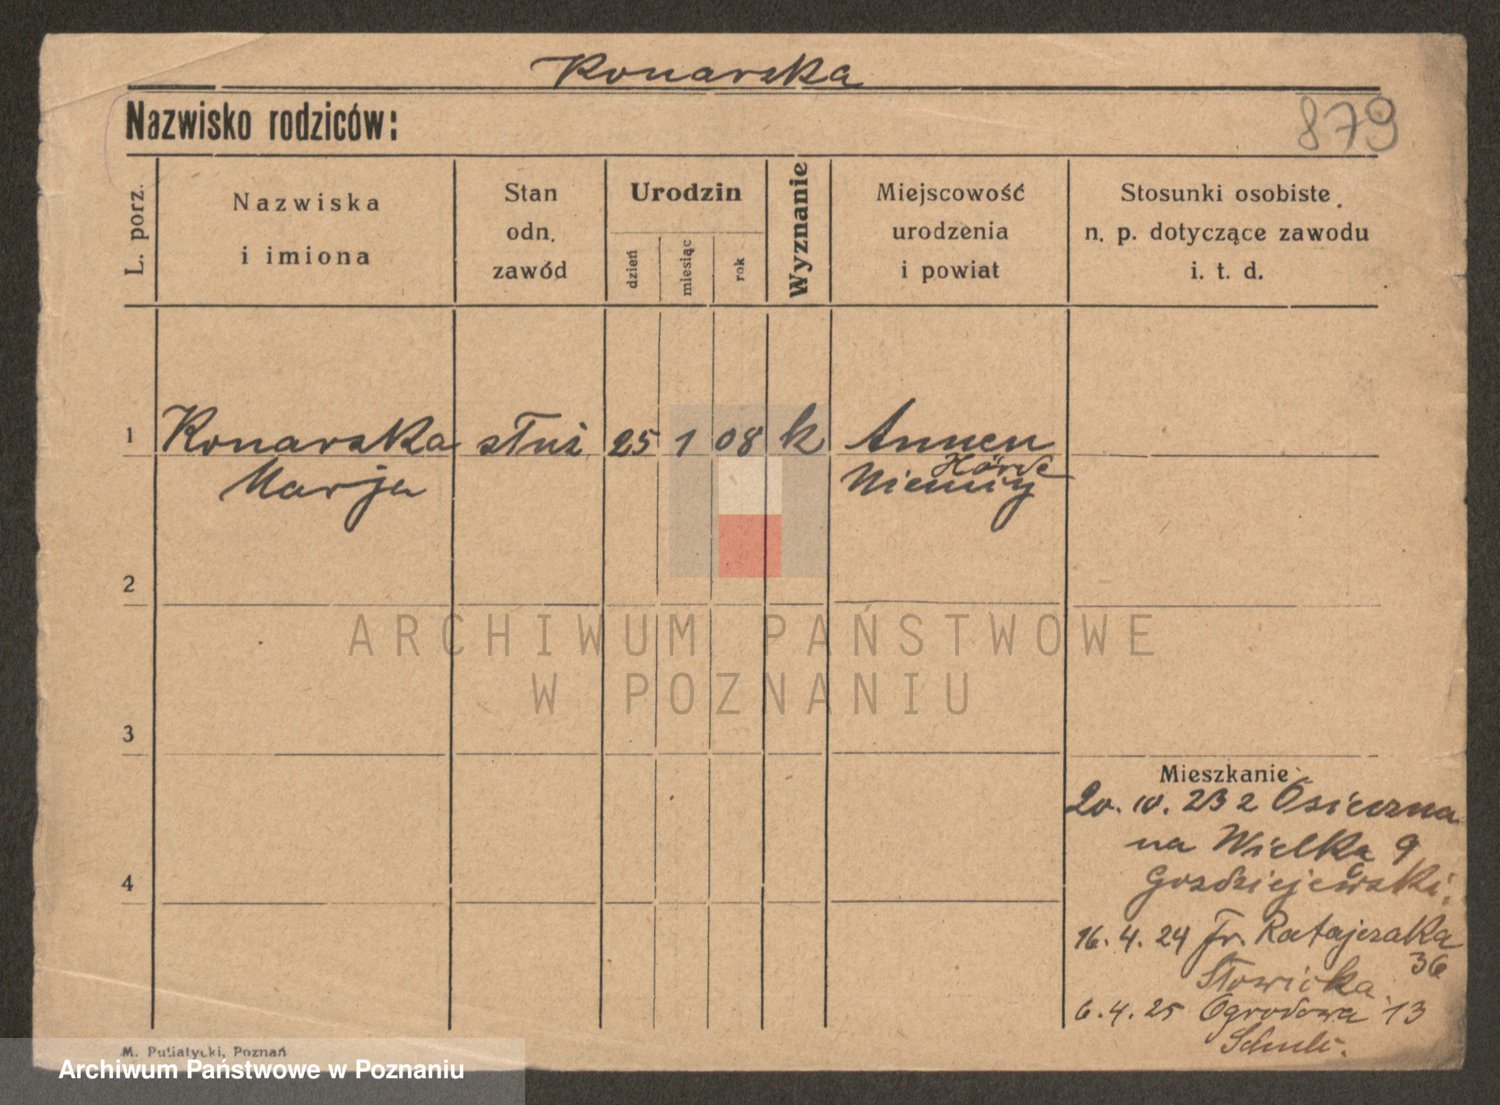 Konarska
Nazwisko rodziców:
879
L. porz.
Nazwiska
i imiona
Stan
odn.
zawód
Urodzin
dzień
miesiąc
rok
Wyznanie
Miejscowość
urodzenia
i powiat
Stosunki osobiste
n. p. dotyczące zawodu
i. t. d.
1 Konarska służ 25 1 08 k Annen
Hörde
Marja Niemcy
2
ARCHIWUM PAŃSTWOWE
W POZNANIU
3
Mieszkanie
20. 10. 23 z Osieczna
na Wielka 9
Gozdziejewski.
4
16. 4. 24 Fr. Ratajczaka
36
Słowicka.
6. 4. 25 Ogrodowa 13
M. Putiatycki, Poznań
Archiwum Państwowe w Poznaniu